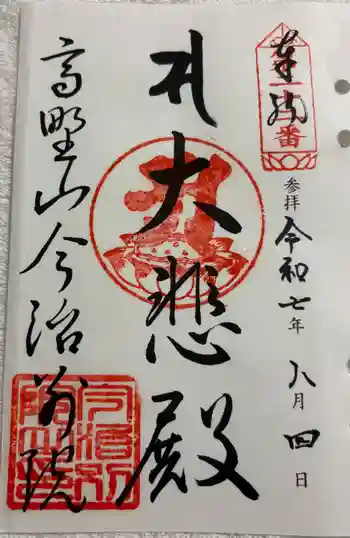 奉拝
番
参拝 令和七年 八月四日
大悲殿
高野山今治別院